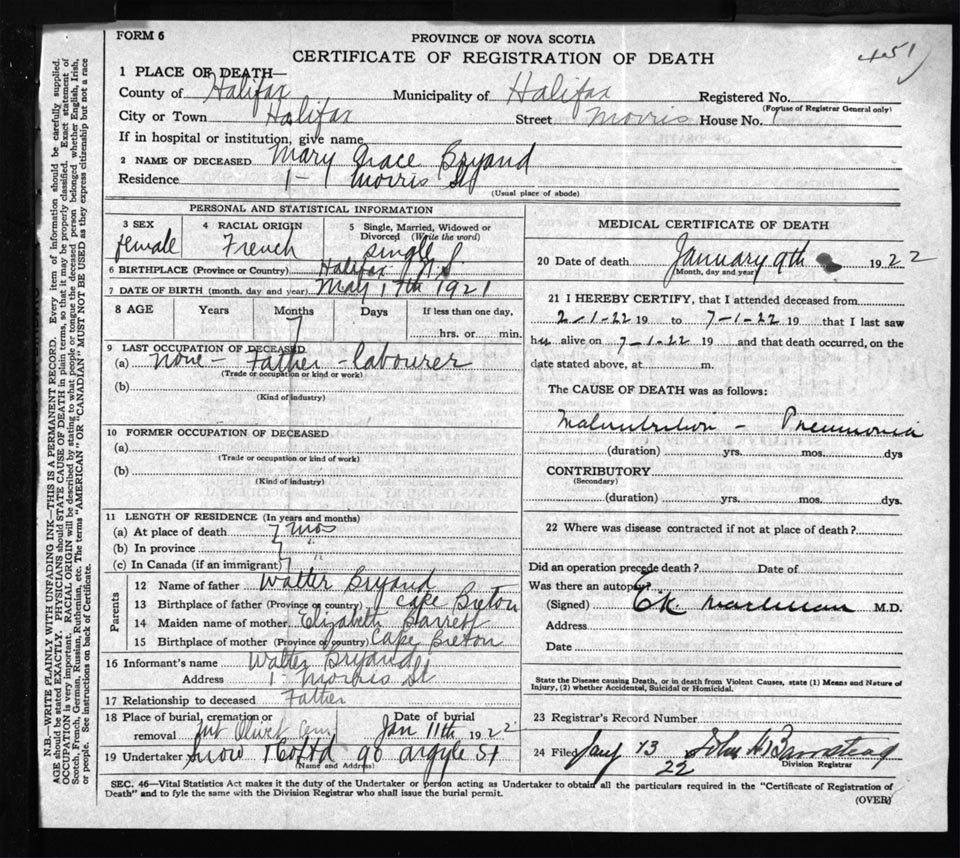 FORM 6
PROVINCE OF NOVA SCOTIA
CERTIFICATE OF REGISTRATION OF DEATH
451
1 PLACE OF DEATH—
County of Halifax Municipality of Halifax Registered No.
(For use of Registrar General only)
City or Town Halifax Street Morris House No. 1
If in hospital or institution, give name
2 NAME OF DECEASED Mary Grace Bryand
Residence 1- Morris St
(Usual place of abode)
PERSONAL AND STATISTICAL INFORMATION
3 SEX female
4 RACIAL ORIGIN French
5 Single, Married, Widowed or Divorced (Write the word) single
6 BIRTHPLACE (Province or Country) Halifax N.S.
7 DATE OF BIRTH (month, day and year) May 17th 1921
8 AGE Years Months 7 Days If less than one day, hrs. or min.
9 LAST OCCUPATION OF DECEASED
(a) none - Father - labourer
(Trade or occupation or kind or work)
(b)
(Kind of industry)
10 FORMER OCCUPATION OF DECEASED
(a)
(Trade or occupation or kind of work)
(b)
(Kind of industry)
11 LENGTH OF RESIDENCE (In years and months)
(a) At place of death 7 mos
(b) In province 7 "
(c) In Canada (if an immigrant) 7
Parents
12 Name of father Walter Bryand
13 Birthplace of father (Province or country) Cape Breton
14 Maiden name of mother Elizabeth Barrett
15 Birthplace of mother (Province or country) Cape Breton
16 Informant's name Walter Bryand
Address 1- Morris St
17 Relationship to deceased Father
18 Place of burial, cremation or removal Mt Olivet Cem Date of burial Jan 11th 1922
19 Undertaker Snow & Co Ltd 90 Argyle St
(Name and Address)
MEDICAL CERTIFICATE OF DEATH
20 Date of death January 9th 1922
(Month, day and year)
21 I HEREBY CERTIFY, that I attended deceased from
2-1-22 19 to 7-1-22 19 that I last saw
her alive on 7-1-22 19 and that death occurred, on the
date stated above, at m.
The CAUSE OF DEATH was as follows:
Malnutrition - Pneumonia
(duration) yrs. mos. dys
CONTRIBUTORY
(Secondary)
(duration) yrs. mos. dys.
22 Where was disease contracted if not at place of death?
Did an operation precede death? Date of
Was there an autopsy?
(Signed) M.D.
Address
Date
State the Disease causing Death, or in death from Violent Causes, state (1) Means and Nature of
Injury, (2) whether Accidental, Suicidal or Homicidal.
23 Registrar's Record Number
24 Filed Jany 13 22 John H Barnstead
Division Registrar
SEC. 46—Vital Statistics Act makes it the duty of the Undertaker or person acting as Undertaker to obtain all the particulars required in the "Certificate of Registration of
Death" and to fyle the same with the Division Registrar who shall issue the burial permit.
(OVER)
N.B.—WRITE PLAINLY WITH UNFADING INK—THIS IS A PERMANENT RECORD. Every item of information should be carefully supplied.
AGE should be stated EXACTLY. PHYSICIANS should STATE CAUSE OF DEATH in plain terms, so that it may be properly classified. Exact statement of
OCCUPATION is very important. RACIAL ORIGIN will be described by stating to what people or tongue the deceased person belonged whether English, Irish,
Scotch, French, German, Russian, Ruthenian, etc. The terms "AMERICAN" OR "CANADIAN" MUST NOT BE USED as they express citizenship but not a race
or people. See instructions on back of Certificate.